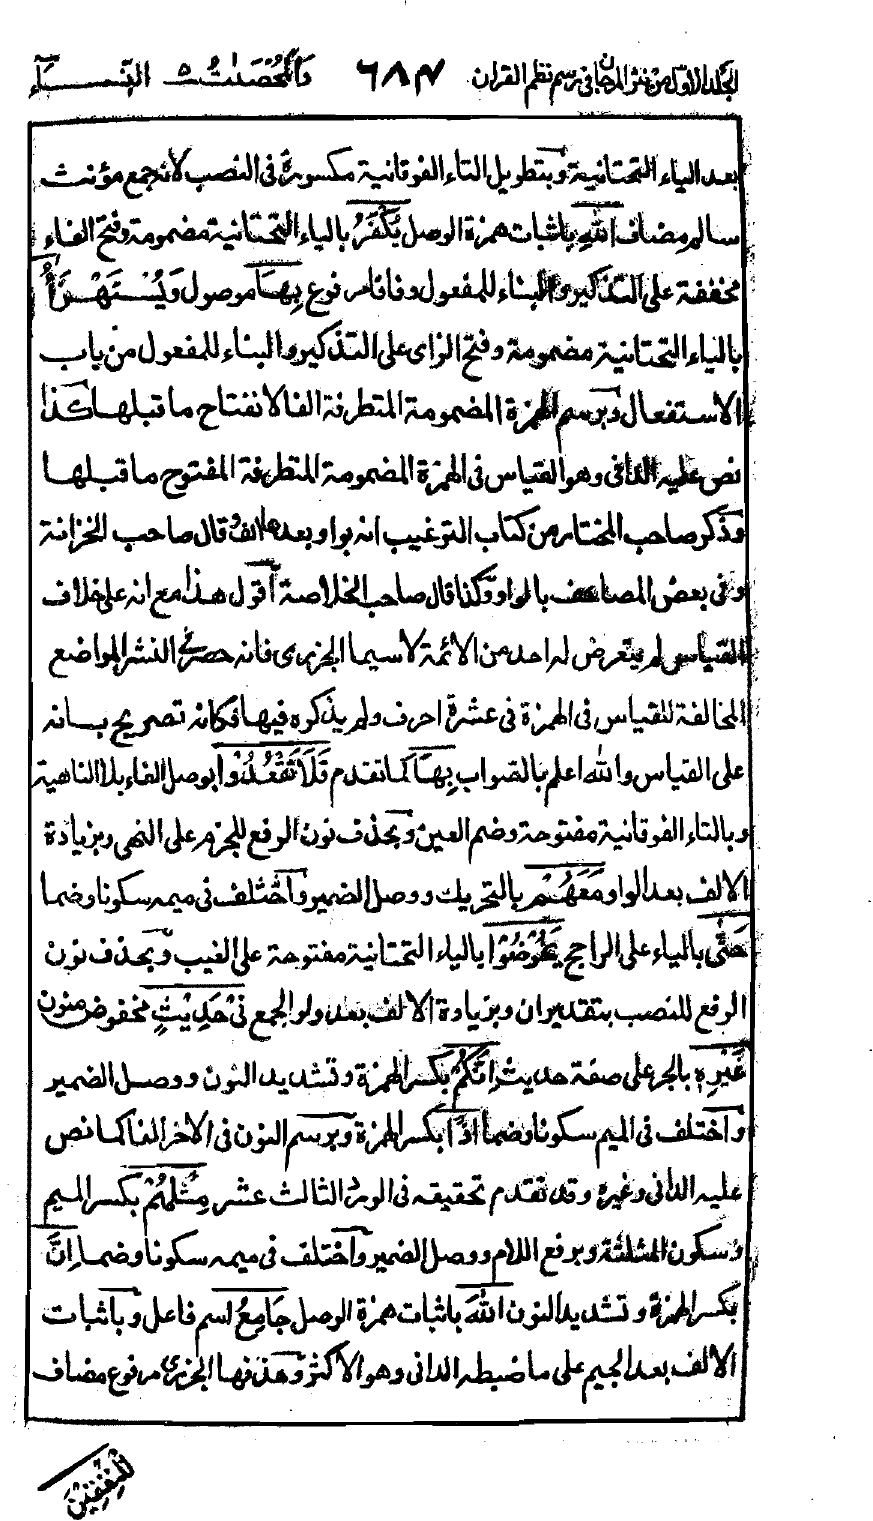 الجلد الاول من نثر المرجان في رسم نظم القران ٦٨٤ وَالْمُحْصَنٰتُ ٥ النِّسَاء
بعد الياء التحتانية وبتطويل التاء الفوقانية مكسورةً فى النصب لانه جمع مؤنث
سالم مضاف اللهِ باثبات همزة الوصل يُكْفَرُ بالياء التحتانية مضمومة وفتح الفاء
مخففة على التذكير والبناء للمفعول وفاقا مرفوع بِهَا موصول وَيُسْتَهْزَأُ
بالياء التحتانية مضمومة وفتح الزاى على التذكير والبناء للمفعول من باب
الاستفعال وبرسم الهمزة المضمومة المتطرفة الفا لانفتاح ما قبلها كذا
نص عليه الدانى وهو القياس فى الهمزة المضمومة المتطرفة المفتوح ما قبلها
وذكر صاحب المختار من كتاب الترغيب انه بواو بعدها الف وقال صاحب الخزانة
وفى بعض المصاحف بالواو وكذا قال صاحب الخلاصة اقول هذا مع انه على خلاف
القياس لم يتعرض له احد من الائمة لاسيما الجزرى فانه حصر فى النشر المواضع
المخالفة للقياس فى الهمزة فى عشرة احرف ولم يذكره فيها فكانه تصريح بانه
على القياس والله اعلم بالصواب بِهَا كما تقدم فَلَا تَقْعُدُوْا بوصل الفاء بلا الناهية
وبالتاء الفوقانية مفتوحة وضم العين وبحذف نون الرفع للجزم على النهى وبزيادة
الالف بعد الواو مَعَهُمْ بالتحريك ووصل الضمير واختلف فى ميمه سكونا وضما
حَتّٰى بالياء على الراجح يَخُوْضُوْا بالياء التحتانية مفتوحة على الغيب وبحذف نون
الرفع للنصب بتقدير ان وبزيادة الالف بعد واو الجمع فِىْ حَدِيْثٍ مخفوض منون
غَيْرِهٖ بالجر على صفة حديث اِنَّكُمْ بكسر الهمزة وتشديد النون ووصل الضمير
واختلف فى الميم سكونا وضما اِذًا بكسر الهمزة وبرسم النون فى الاخر الفا كما نص
عليه الدانى وغيره وقد تقدم تحقيقه فى الورد الثالث عشر مِثْلُهُمْ بكسر الميم
وسكون المثلثة وبرفع اللام ووصل الضمير واختلف فى ميمه سكونا وضما اِنَّ
بكسر الهمزة وتشديد النون اللهَ باثبات همزة الوصل جَامِعُ اسم فاعل وباثبات
الالف بعد الجيم على ما ضبطه الدانى وهو الاكثر وحذفها الجزرى مرفوع مضاف
الْمُنٰفِقِيْنَ